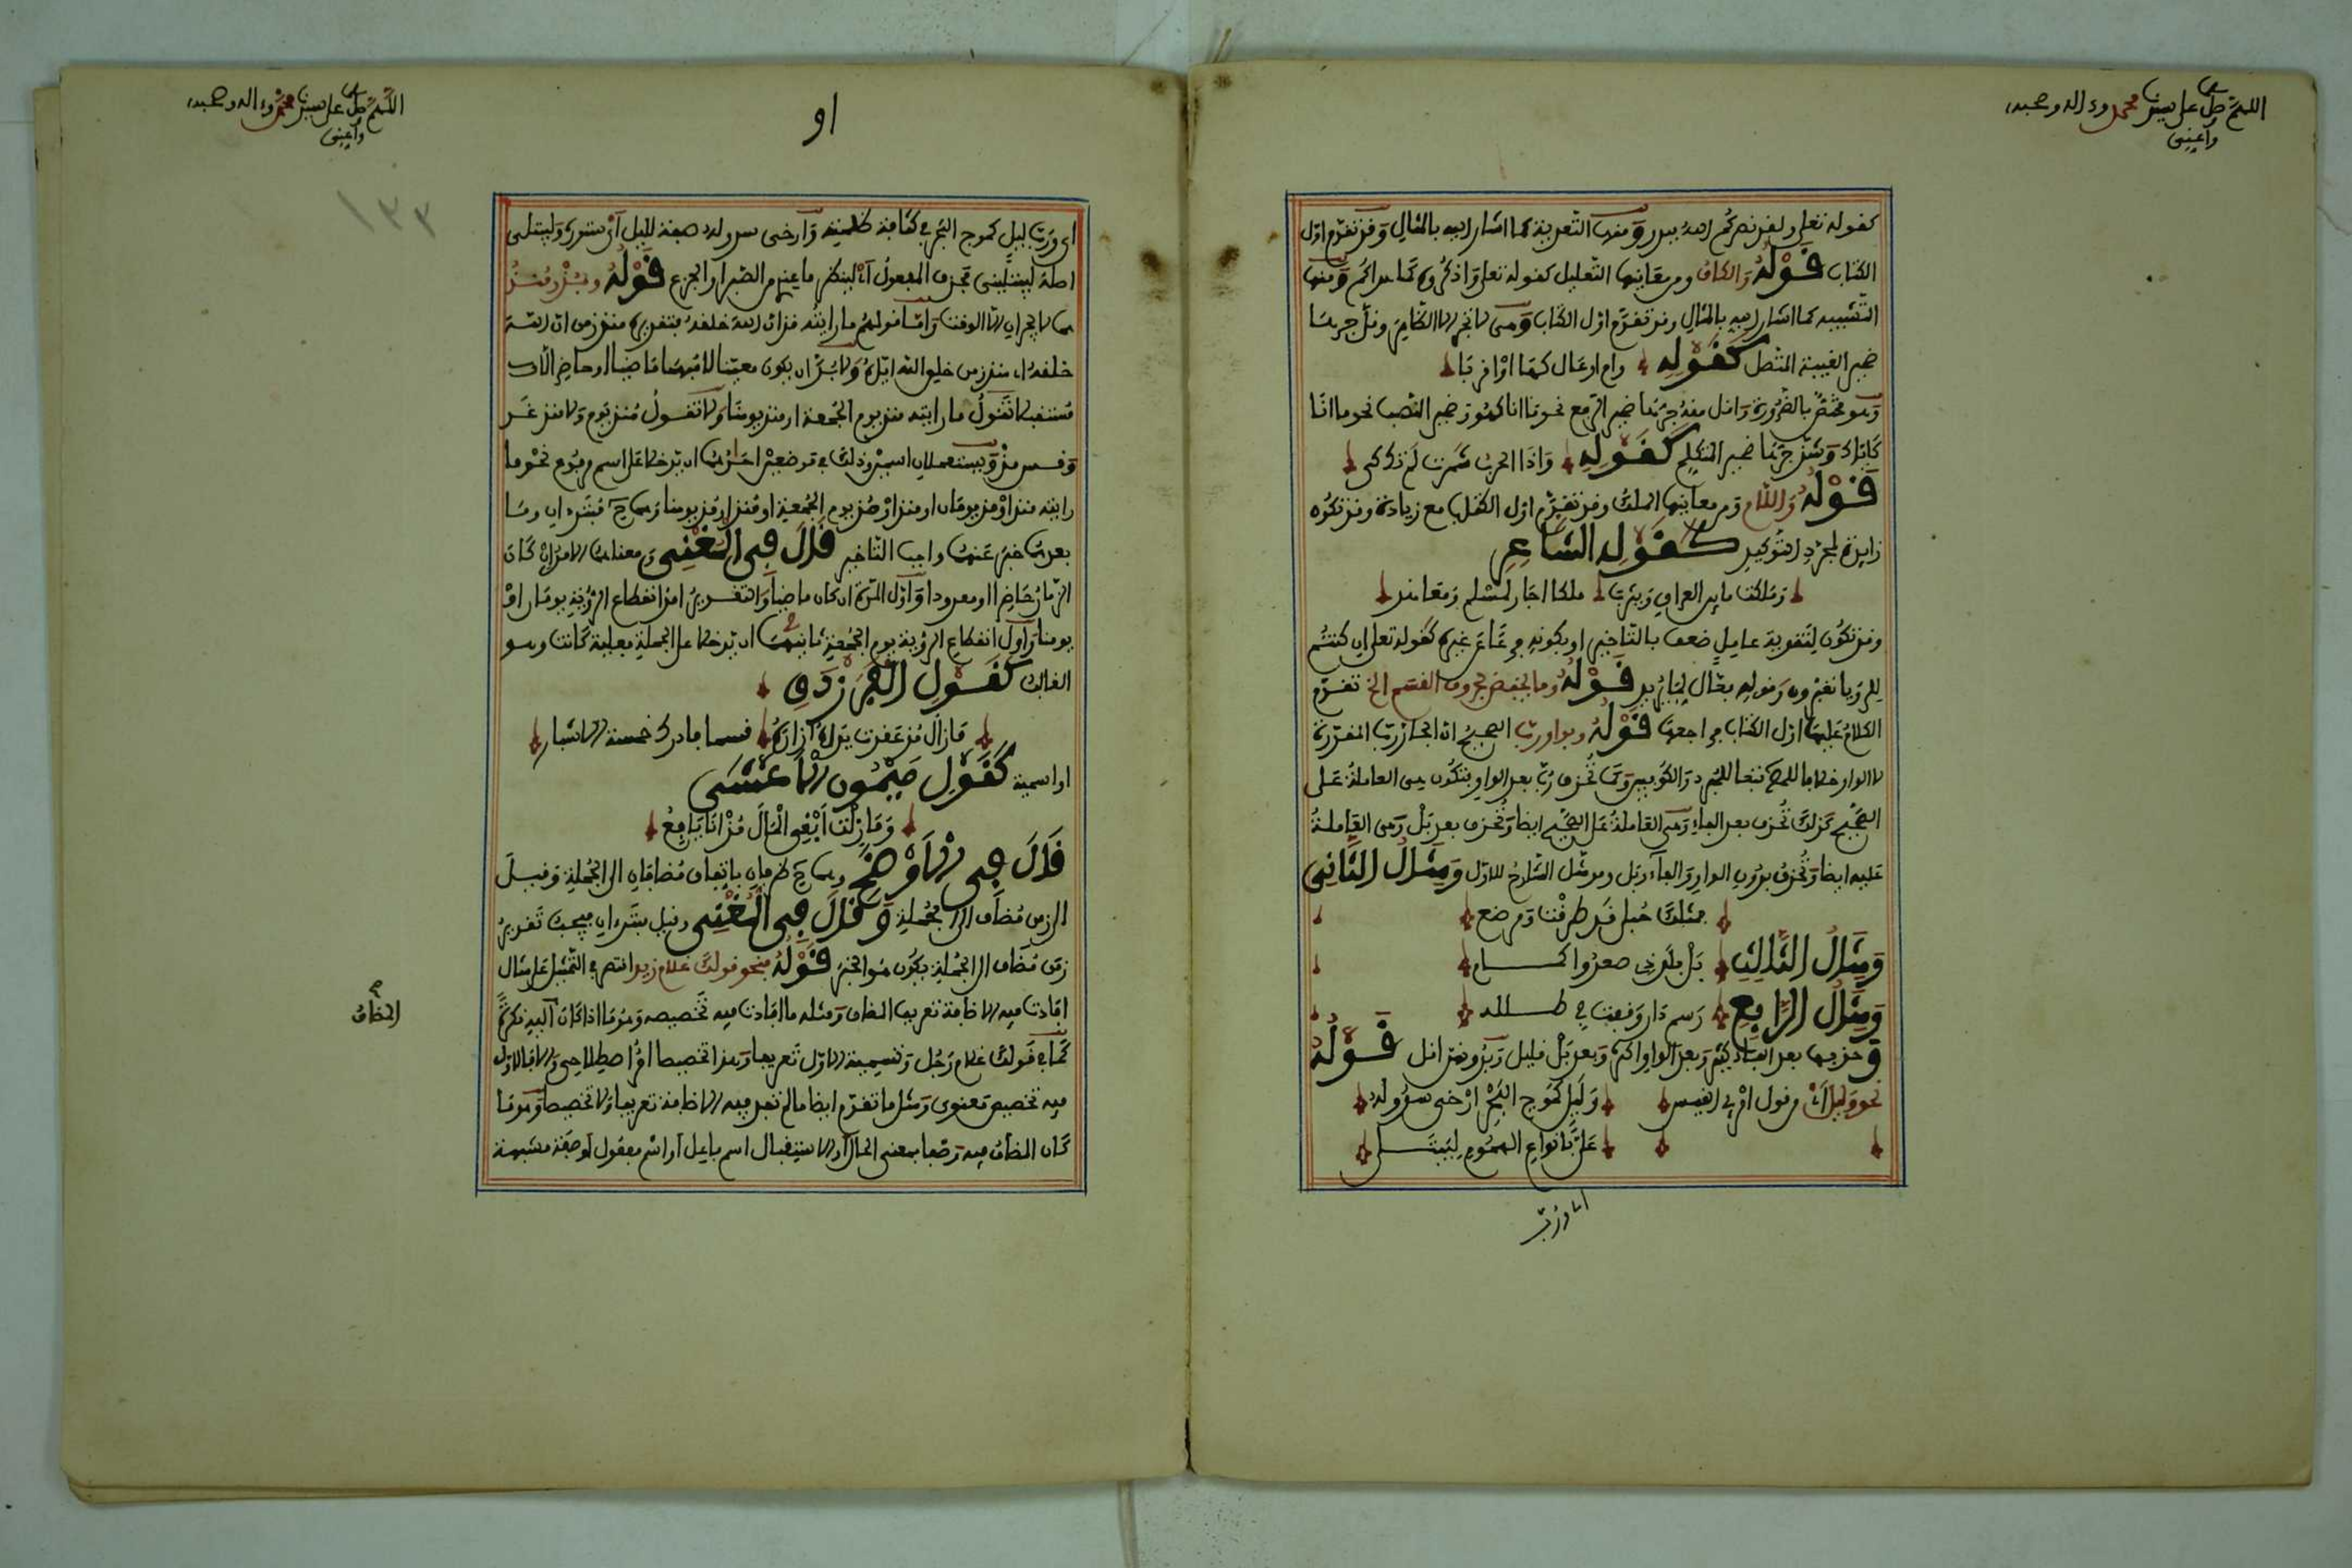 اللهم صل على سيدنا محمد وءاله وصحبه
وأعني
كقوله تعلى ولقد نصركم الله ببدر ومنها التعدية كما أشار إليه بالمثال وقد تقدم أول
الكتاب قوله والكاف ومن معانيها التعليل كقوله تعلى واذكروه كما هداكم ومنها
التشبيه كما أشار إليه بالمثال وقد تقدم أول الكتاب وهي لا تجر إلا الظاهر وقل جرها
ضمير الغيبة المتصل كقوله وأم أوعال كها أو أقربا
وهو مختص بالضرورة وأقل منه جرها ضمير الرفع نحو ما أنا كهو وضمير النصب نحو ما أنا
كإياك وشذ جرها ضمير المتكلم كقوله وإذا الحرب شمرت لم تكن كي
قوله واللام ومن معانيها الملك وقد تقدم أول الكتاب مع زيادة وقد تكون
زايدة لمجرد التوكيد كقول الشاعر
وملكت ما بين العراق ويثرب ملكا أجار لمسلم ومعاهد
وقد تكون لتقوية عامل ضعف بالتأخير أو بكونه فرعا عن غيره كقوله تعلى إن كنتم
للرءيا تعبرون وقوله فعال لما يريد قوله وما يخفض بحروف القسم الخ تقدم
الكلام عليها أول الكتاب فراجعه قوله وبواو رب الصحيح أن الجار رب المقدرة
لا الواو خلافا للمبرد والكوفيين وكما تحذف رب بعد الواو وتكون هي العاملة على
الصحيح كذلك تحذف بعد الفاء وهي العاملة على الصحيح أيضا وتحذف بعد بل وهي العاملة
عليه أيضا وتحذف بدون الواو والفاء وبل ومثل الشارح للأول ومثال الثاني
فمثلك حبلى قد طرقت ومرضع
ومثال الثالث بل بلد ذي صعد وآكام
ومثال الرابع رسم دار وقفت في طلله
وحذفها بعد الفاء كثير وبعد الواو أكثر وبعد بل قليل وبدونهن أقل قوله
نحو وليل أي من قول امرئ القيس وليل كموج البحر أرخى سدوله
علي بأنواع الهموم ليبتلي
أي ورب
اللهم صل على سيدنا محمد وءاله وصحبه
وأعني
او
١٣٣
أي ورب ليل كموج البحر في كثافة ظلمته وأرخى سدوله صفة لليل أي ستوره وليبتلي
أصله ليبتليني فحذف المفعول أي لينظر ما عندي من الصبر أو الجزع قوله وبمذ ومنذ
هما لا يجران إلا الوقت وأما قولهم ما رأيته مذ أن الله خلقه فتقديره منذ زمن أن الله
خلقه أي منذ زمن خلق الله إياه ولا بد أن يكون معينا لا مبهما ماضيا أو حاضرا لا
مستقبلا تقول ما رأيته منذ يوم الجمعة أو منذ يومنا ولا تقول منذ يوم ولا منذ غد
وقس مذ ويستعملان اسمين وذلك في موضعين أحدهما أن يدخلا على اسم مرفوع نحو ما
رأيته منذ أو مذ يومان أو منذ أو مذ يوم الجمعة أو منذ أو مذ يومنا وهما ح مبتدءان وما
بعدهما خبر عنهما واجب التأخير قال في المغني ومعناهما الأمد إن كان
الزمان حاضرا أو معدودا وأول المدة إن كان ماضيا والتقدير أمد انقطاع الرؤية يومان أو
يومنا وأول انقطاع الرؤية يوم الجمعة ثانيهما أن يدخلا على الجملة فعلية كانت وهو
الغالب كقول الفرزدق
ما زال مذ عقدت يداه إزاره فسما فأدرك خمسة الأشبار
أو اسمية كقول ميمون الأعشى
وما زلت أبغي المال مذ أنا يافع
قال في الأوضح وهما ح ظرفان باتفاق مضافان إلى الجملة وقيل
الزمن مضاف إلى الجملة وقال في المغني وقيل مبتدءان فيجب تقدير
زمن مضاف إلى الجملة يكون هو الخبر قوله فنحو قولك غلام زيد اقتصر في التمثيل على مثال
أفادت فيه الإضافة تعريف المضاف ومثله ما أفادت فيه تخصيصه وهو ما إذا كان المضاف إليه نكرة
المضاف
كما في قولك غلام رجل وتسمية الأول تعريفا وهذا تخصيصا أمر اصطلاحي وإلا فالأول
فيه تخصيص معنوي ومثل ما تقدم أيضا ما لم تفد فيه الإضافة تعريفا ولا تخصيصا وهو ما
كان المضاف فيه وصفا بمعنى الحال أو الاستقبال اسم فاعل أو اسم مفعول أو صفة مشبهة